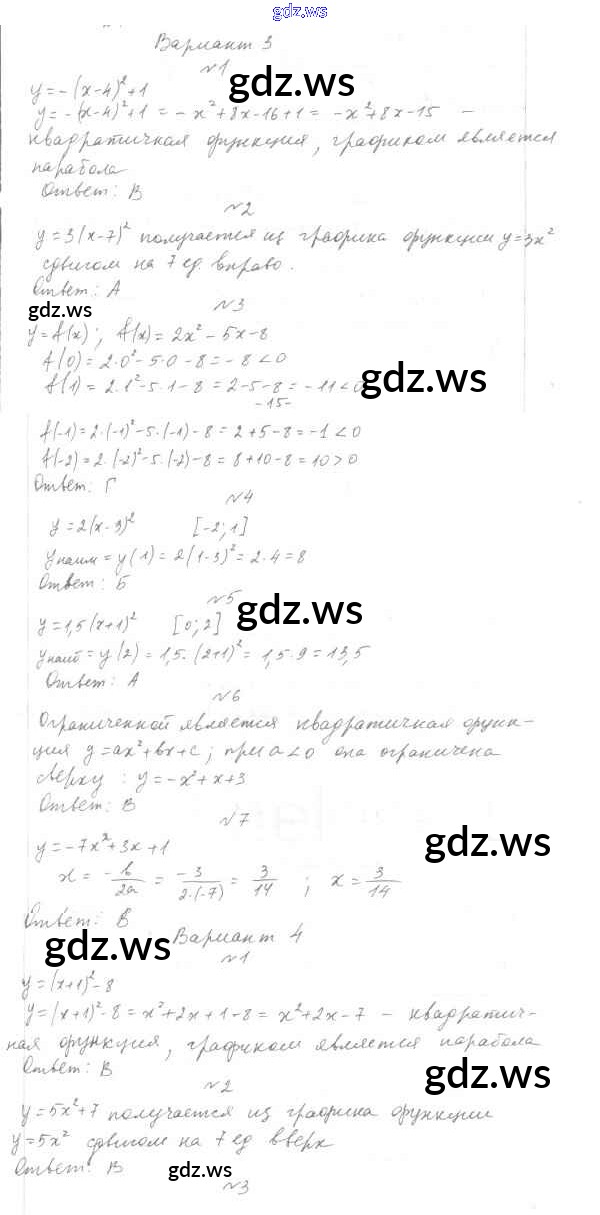 gdz.ws
Вариант 3
№1
y=-(x-4)²+1
gdz.ws
y=-(x-4)²+1 = -x²+8x-16+1 = -x²+8x-15 -
квадратичная функция, графиком является
парабола
Ответ: В
№2
y=3(x-7)² получается из графика функции y=3x²
сдвигом на 7 ед. вправо.
Ответ: А
gdz.ws
№3
y=f(x); f(x)=2x²-5x-8
f(0)=2·0²-5·0-8=-8<0
f(1)=2·1²-5·1-8=2-5-8=-11<0
gdz.ws
-15-
f(-1)=2·(-1)²-5·(-1)-8=2+5-8=-1<0
f(-2)=2·(-2)²-5·(-2)-8=8+10-8=10>0
Ответ: Г
№4
y=2(x-3)² [-2;1]
yнаим=y(1)=2(1-3)²=2·4=8
Ответ: Б
№5
gdz.ws
y=1,5(x+1)² [0;2]
yнаиб=y(2)=1,5·(2+1)²=1,5·9=13,5
Ответ: А
№6
Ограниченной является квадратичная функ-
ция y=ax²+bx+c; при a<0 она ограничена
сверху: y=-x²+x+3
Ответ: В
№7
gdz.ws
y=-7x²+3x+1
x = -b/2a = -3/2·(-7) = 3/14 ; x = 3/14
Ответ: В
gdz.ws
Вариант 4
№1
y=(x+1)²-8
y=(x+1)²-8=x²+2x+1-8=x²+2x-7 - квадратич-
ная функция, графиком является парабола
Ответ: В
gdz.ws
№2
y=5x²+7 получается из графика функции
y=5x² сдвигом на 7 ед вверх
Ответ: В
gdz.ws
№3